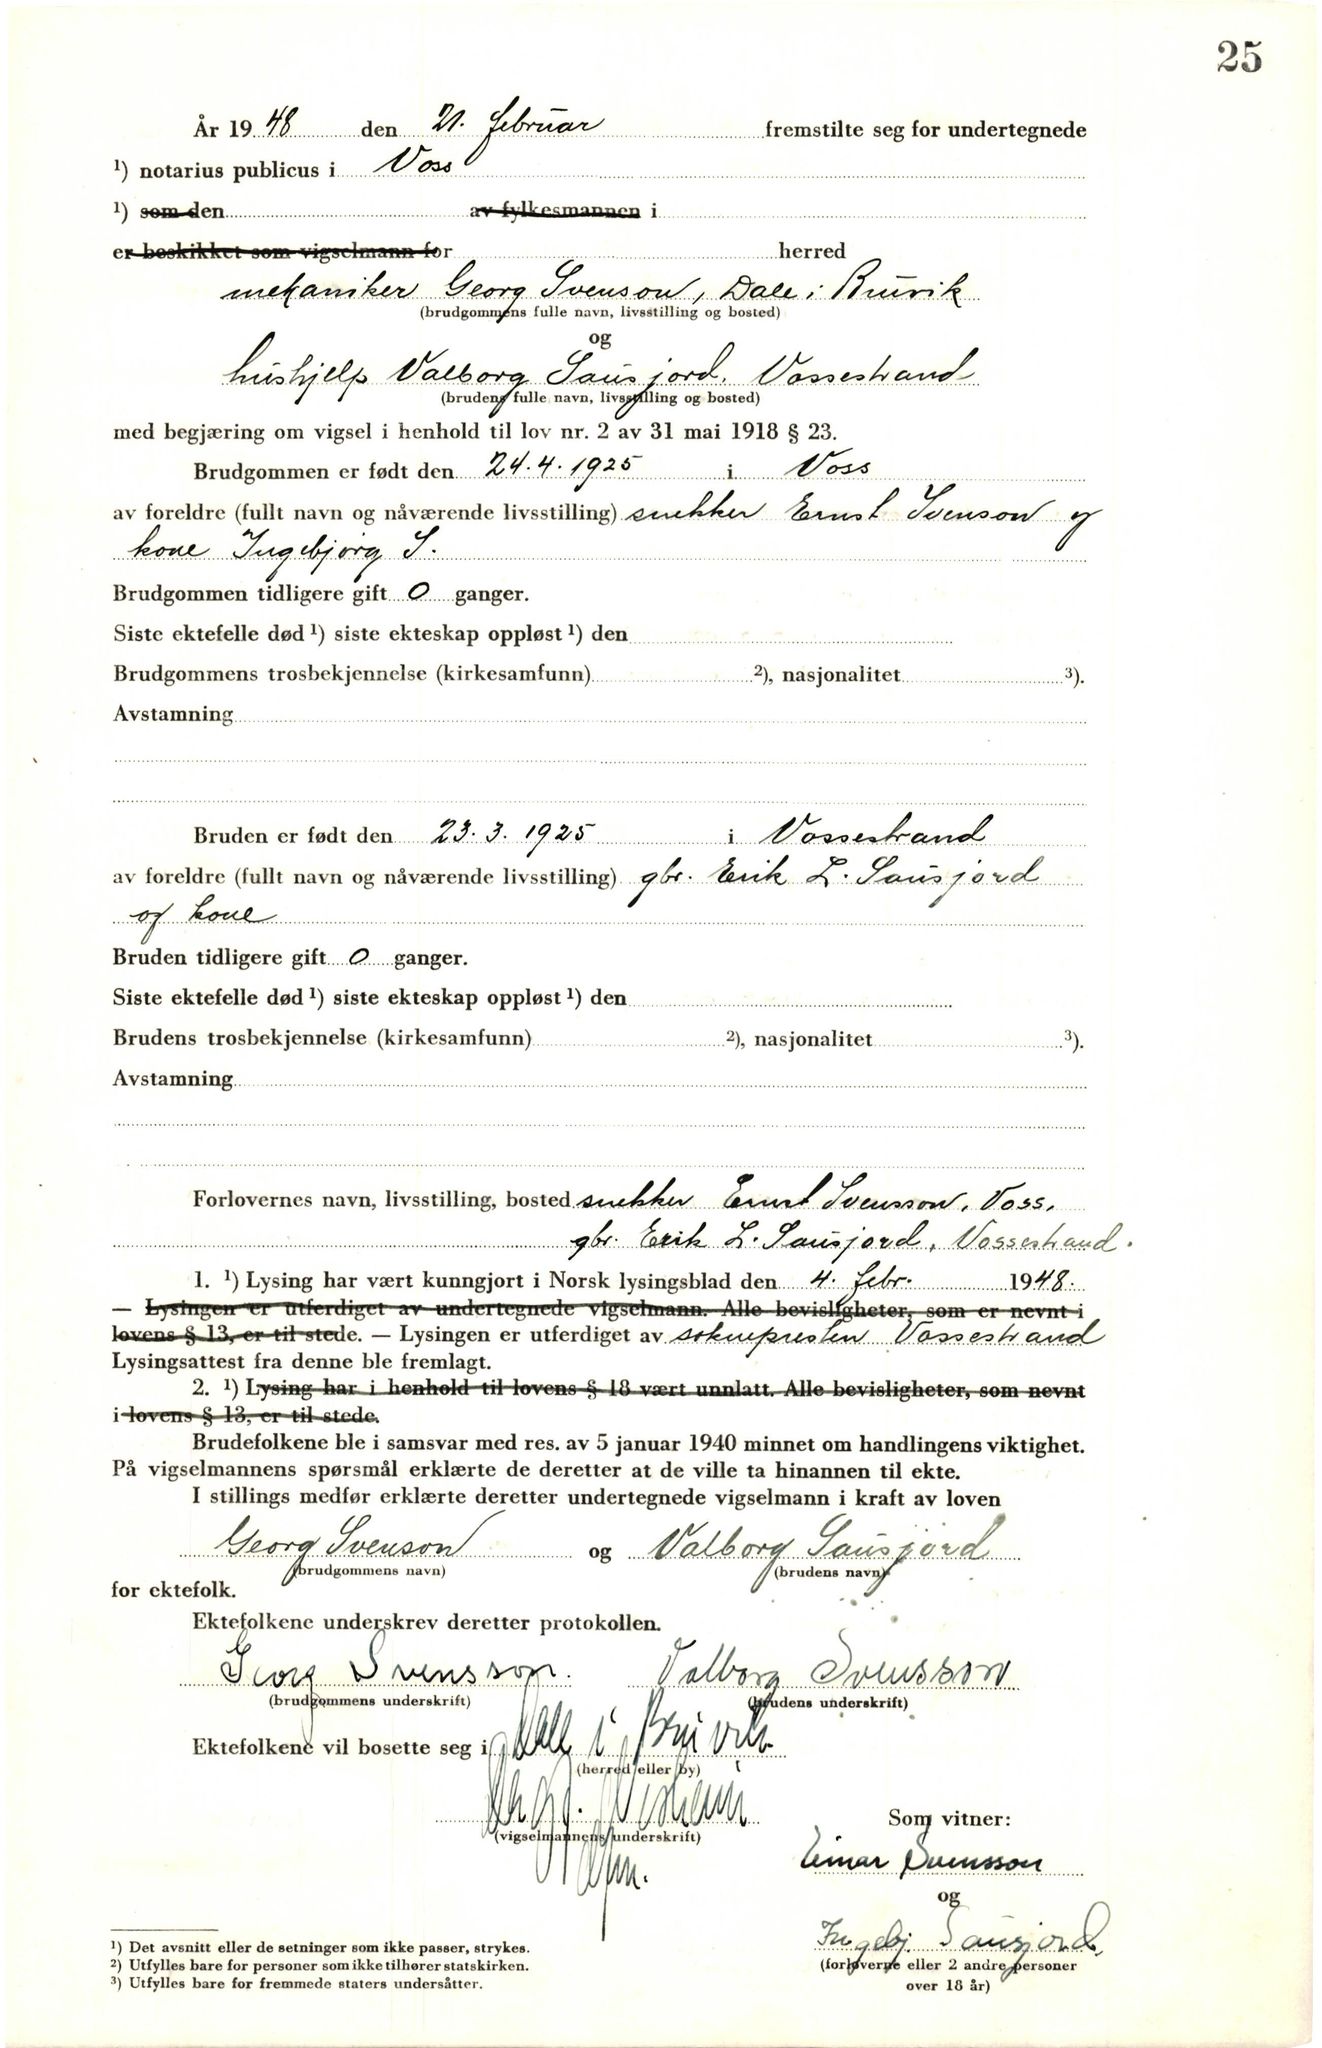 25
År 1948 den 21. februar fremstilte seg for undertegnede
¹) notarius publicus i Voss
¹) som den av fylkesmannen i
er beskikket som vigselmann for herred
mekaniker Georg Svenson, Dale i Bruvik
(brudgommens fulle navn, livsstilling og bosted)
og
hushjelp Valborg Sausjord, Vossestrand
(brudens fulle navn, livsstilling og bosted)
med begjæring om vigsel i henhold til lov nr. 2 av 31 mai 1918 § 23.
Brudgommen er født den 24.4.1925 i Voss
av foreldre (fullt navn og nåværende livsstilling) snekker Ernst Svenson og
kone Ingebjørg S.
Brudgommen tidligere gift 0 ganger.
Siste ektefelle død ¹) siste ekteskap oppløst ¹) den
Brudgommens trosbekjennelse (kirkesamfunn) ²), nasjonalitet ³).
Avstamning
Bruden er født den 23.3.1925 i Vossestrand
av foreldre (fullt navn og nåværende livsstilling) gbr. Erik L. Sausjord
og kone
Bruden tidligere gift 0 ganger.
Siste ektefelle død ¹) siste ekteskap oppløst ¹) den
Brudens trosbekjennelse (kirkesamfunn) ²), nasjonalitet ³).
Avstamning
Forlovernes navn, livsstilling, bosted snekker Ernst Svensson, Voss,
gbr. Erik L. Sausjord, Vossestrand.
1. ¹) Lysing har vært kunngjort i Norsk lysingsblad den 4. febr. 1948.
— Lysingen er utferdiget av undertegnede vigselmann. Alle bevisligheter, som er nevnt i
lovens § 13, er til stede. — Lysingen er utferdiget av soknepresten Vossestrand
Lysingsattest fra denne ble fremlagt.
2. ¹) Lysing har i henhold til lovens § 18 vært unnlatt. Alle bevisligheter, som nevnt
i lovens § 13, er til stede.
Brudefolkene ble i samsvar med res. av 5 januar 1940 minnet om handlingens viktighet.
På vigselmannens spørsmål erklærte de deretter at de ville ta hinannen til ekte.
I stillings medfør erklærte deretter undertegnede vigselmann i kraft av loven
Georg Svenson og Valborg Sausjord
(brudgommens navn) (brudens navn)
for ektefolk.
Ektefolkene underskrev deretter protokollen.
Georg Svensson. Valborg Svensson
(brudgommens underskrift) (brudens underskrift)
Ektefolkene vil bosette seg i Dale i Bruvik
(herred eller by)
Som vitner:
(vigselmannens underskrift)
Einar Svensson
og
Ingebj. Sausjord.
(forloverne eller 2 andre personer
over 18 år)
¹) Det avsnitt eller de setninger som ikke passer, strykes.
²) Utfylles bare for personer som ikke tilhører statskirken.
³) Utfylles bare for fremmede staters undersåtter.